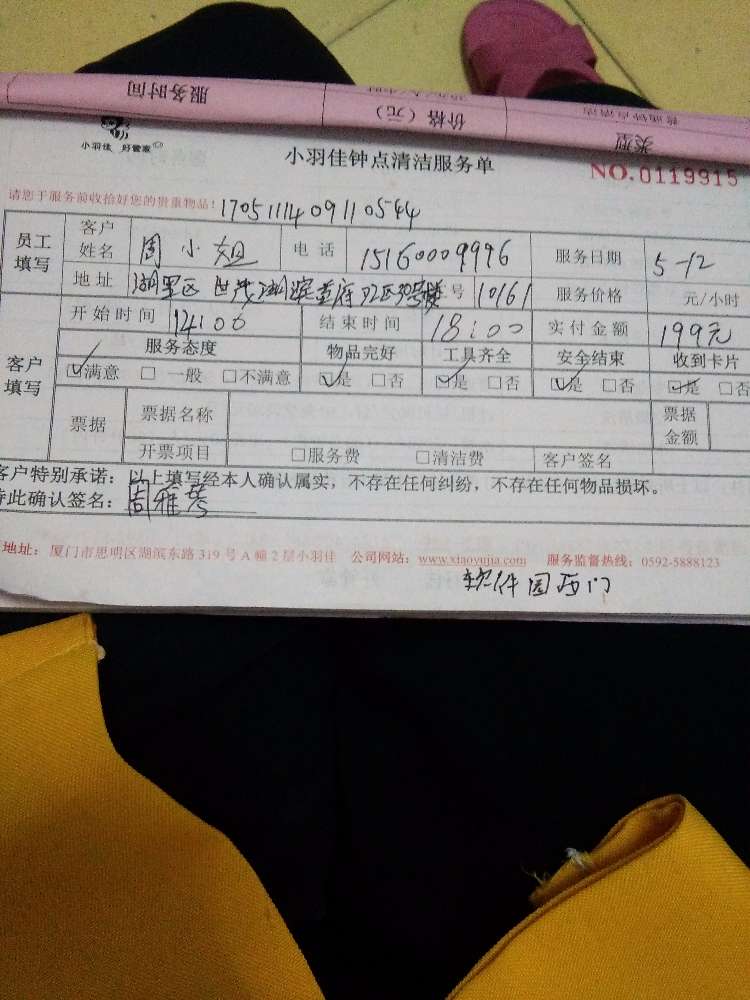 服务时间 价格（元） 类型
普通钟点清洁
小羽佳 好管家
小羽佳钟点清洁服务单
NO.0119915
请您于服务前收拾好您的贵重物品！ 1705111409110544
员工填写 客户姓名 周小姐 电话 15160009996 服务日期 5-12
地址 湖里区世茂湖滨首府 号 10161 服务价格 元/小时
客户填写 开始时间 14:00 结束时间 18:00 实付金额 199元
服务态度 物品完好 工具齐全 安全结束 收到卡片
☑满意 □一般 □不满意 ☑是 □否 ☑是 □否 ☑是 □否 ☑是 □否
票据 票据名称 票据金额
开票项目 □服务费 □清洁费 客户签名
客户特别承诺：以上填写经本人确认属实，不存在任何纠纷，不存在任何物品损坏。
特此确认签名：周雅
地址：厦门市思明区湖滨东路319号A幢2层小羽佳 公司网站：www.xiaoyujia.com 服务监督热线：0592-5888123
软件园西门